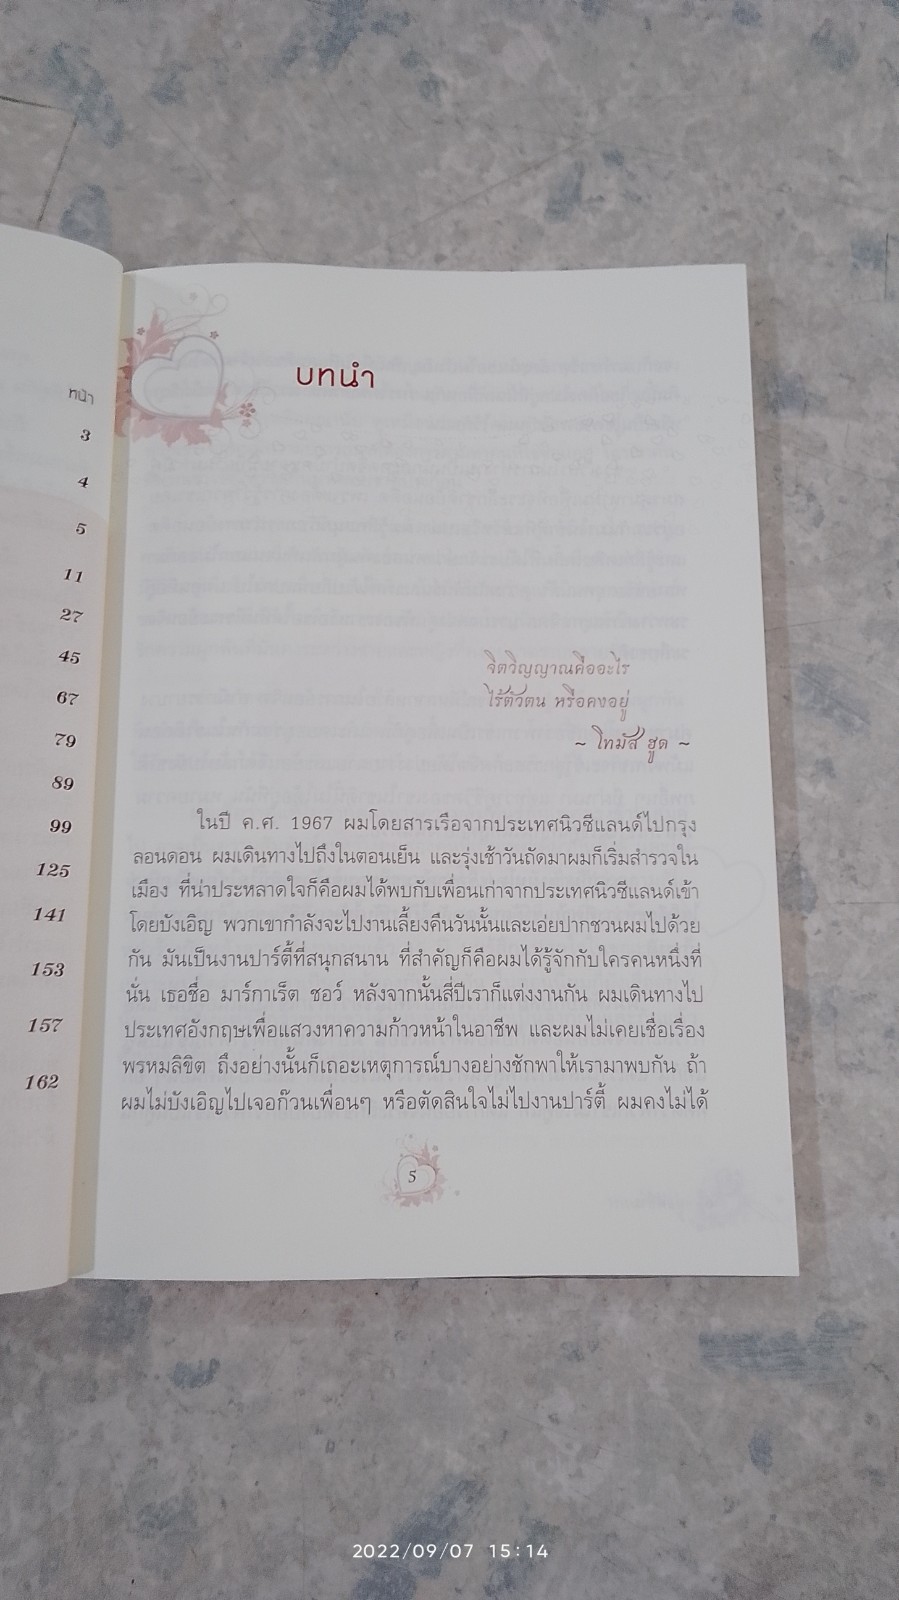 หน้า
3
4
5
11
27
45
67
79
89
99
125
141
153
157
162
บทนำ
จิตวิญญาณคืออะไร
ไร้ตัวตน หรือคงอยู่
~ โทมัส ฮูด ~
ในปี ค.ศ. 1967 ผมโดยสารเรือจากประเทศนิวซีแลนด์ไปกรุง
ลอนดอน ผมเดินทางไปถึงในตอนเย็น และรุ่งเช้าวันถัดมาผมก็เริ่มสำรวจใน
เมือง ที่น่าประหลาดใจก็คือผมได้พบกับเพื่อนเก่าจากประเทศนิวซีแลนด์เข้า
โดยบังเอิญ พวกเขากำลังจะไปงานเลี้ยงคืนวันนั้นและเอ่ยปากชวนผมไปด้วย
กัน มันเป็นงานปาร์ตี้ที่สนุกสนาน ที่สำคัญก็คือผมได้รู้จักกับใครคนหนึ่งที่
นั่น เธอชื่อ มาร์กาเร็ต ชอว์ หลังจากนั้นสี่ปีเราก็แต่งงานกัน ผมเดินทางไป
ประเทศอังกฤษเพื่อแสวงหาความก้าวหน้าในอาชีพ และผมไม่เคยเชื่อเรื่อง
พรหมลิขิต ถึงอย่างนั้นก็เถอะเหตุการณ์บางอย่างชักพาให้เรามาพบกัน ถ้า
ผมไม่บังเอิญไปเจอก๊วนเพื่อนๆ หรือตัดสินใจไม่ไปงานปาร์ตี้ ผมคงไม่ได้
5
2022/09/07 15:14